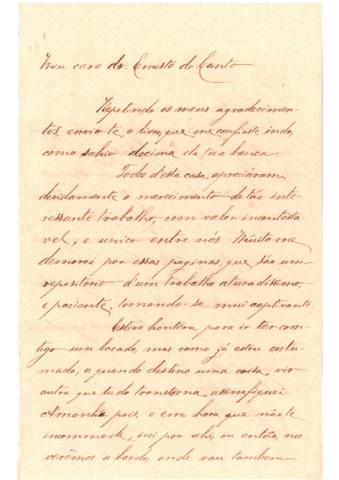 Meu caro dr. Ernesto do Canto
Repetindo os meus agradecimen-
tos, envio-te o livro, que me confiaste, indo,
como sahio decima da tua banca.
Todos d'esta casa, apreciáram
devidamente o merecimento de tão inte-
ressante trabalho, com valor incontesta-
vel, e unico entre nós. Muito me
demorei por essas paginas, que são um
repositorio d'um trabalho aturadissimo,
e paciente, tornando-se mui captivante.
Estive hontem para ir ter com-
tigo um bocado, mas como já estou costu-
mado, a quando destino uma coisa, vir
outra que tudo transtorna, assim fiquei
Amanhã pois, e em hora que não te
incommode, irei por ahi, ou então, nos
verêmos a bordo, onde vou tambem.